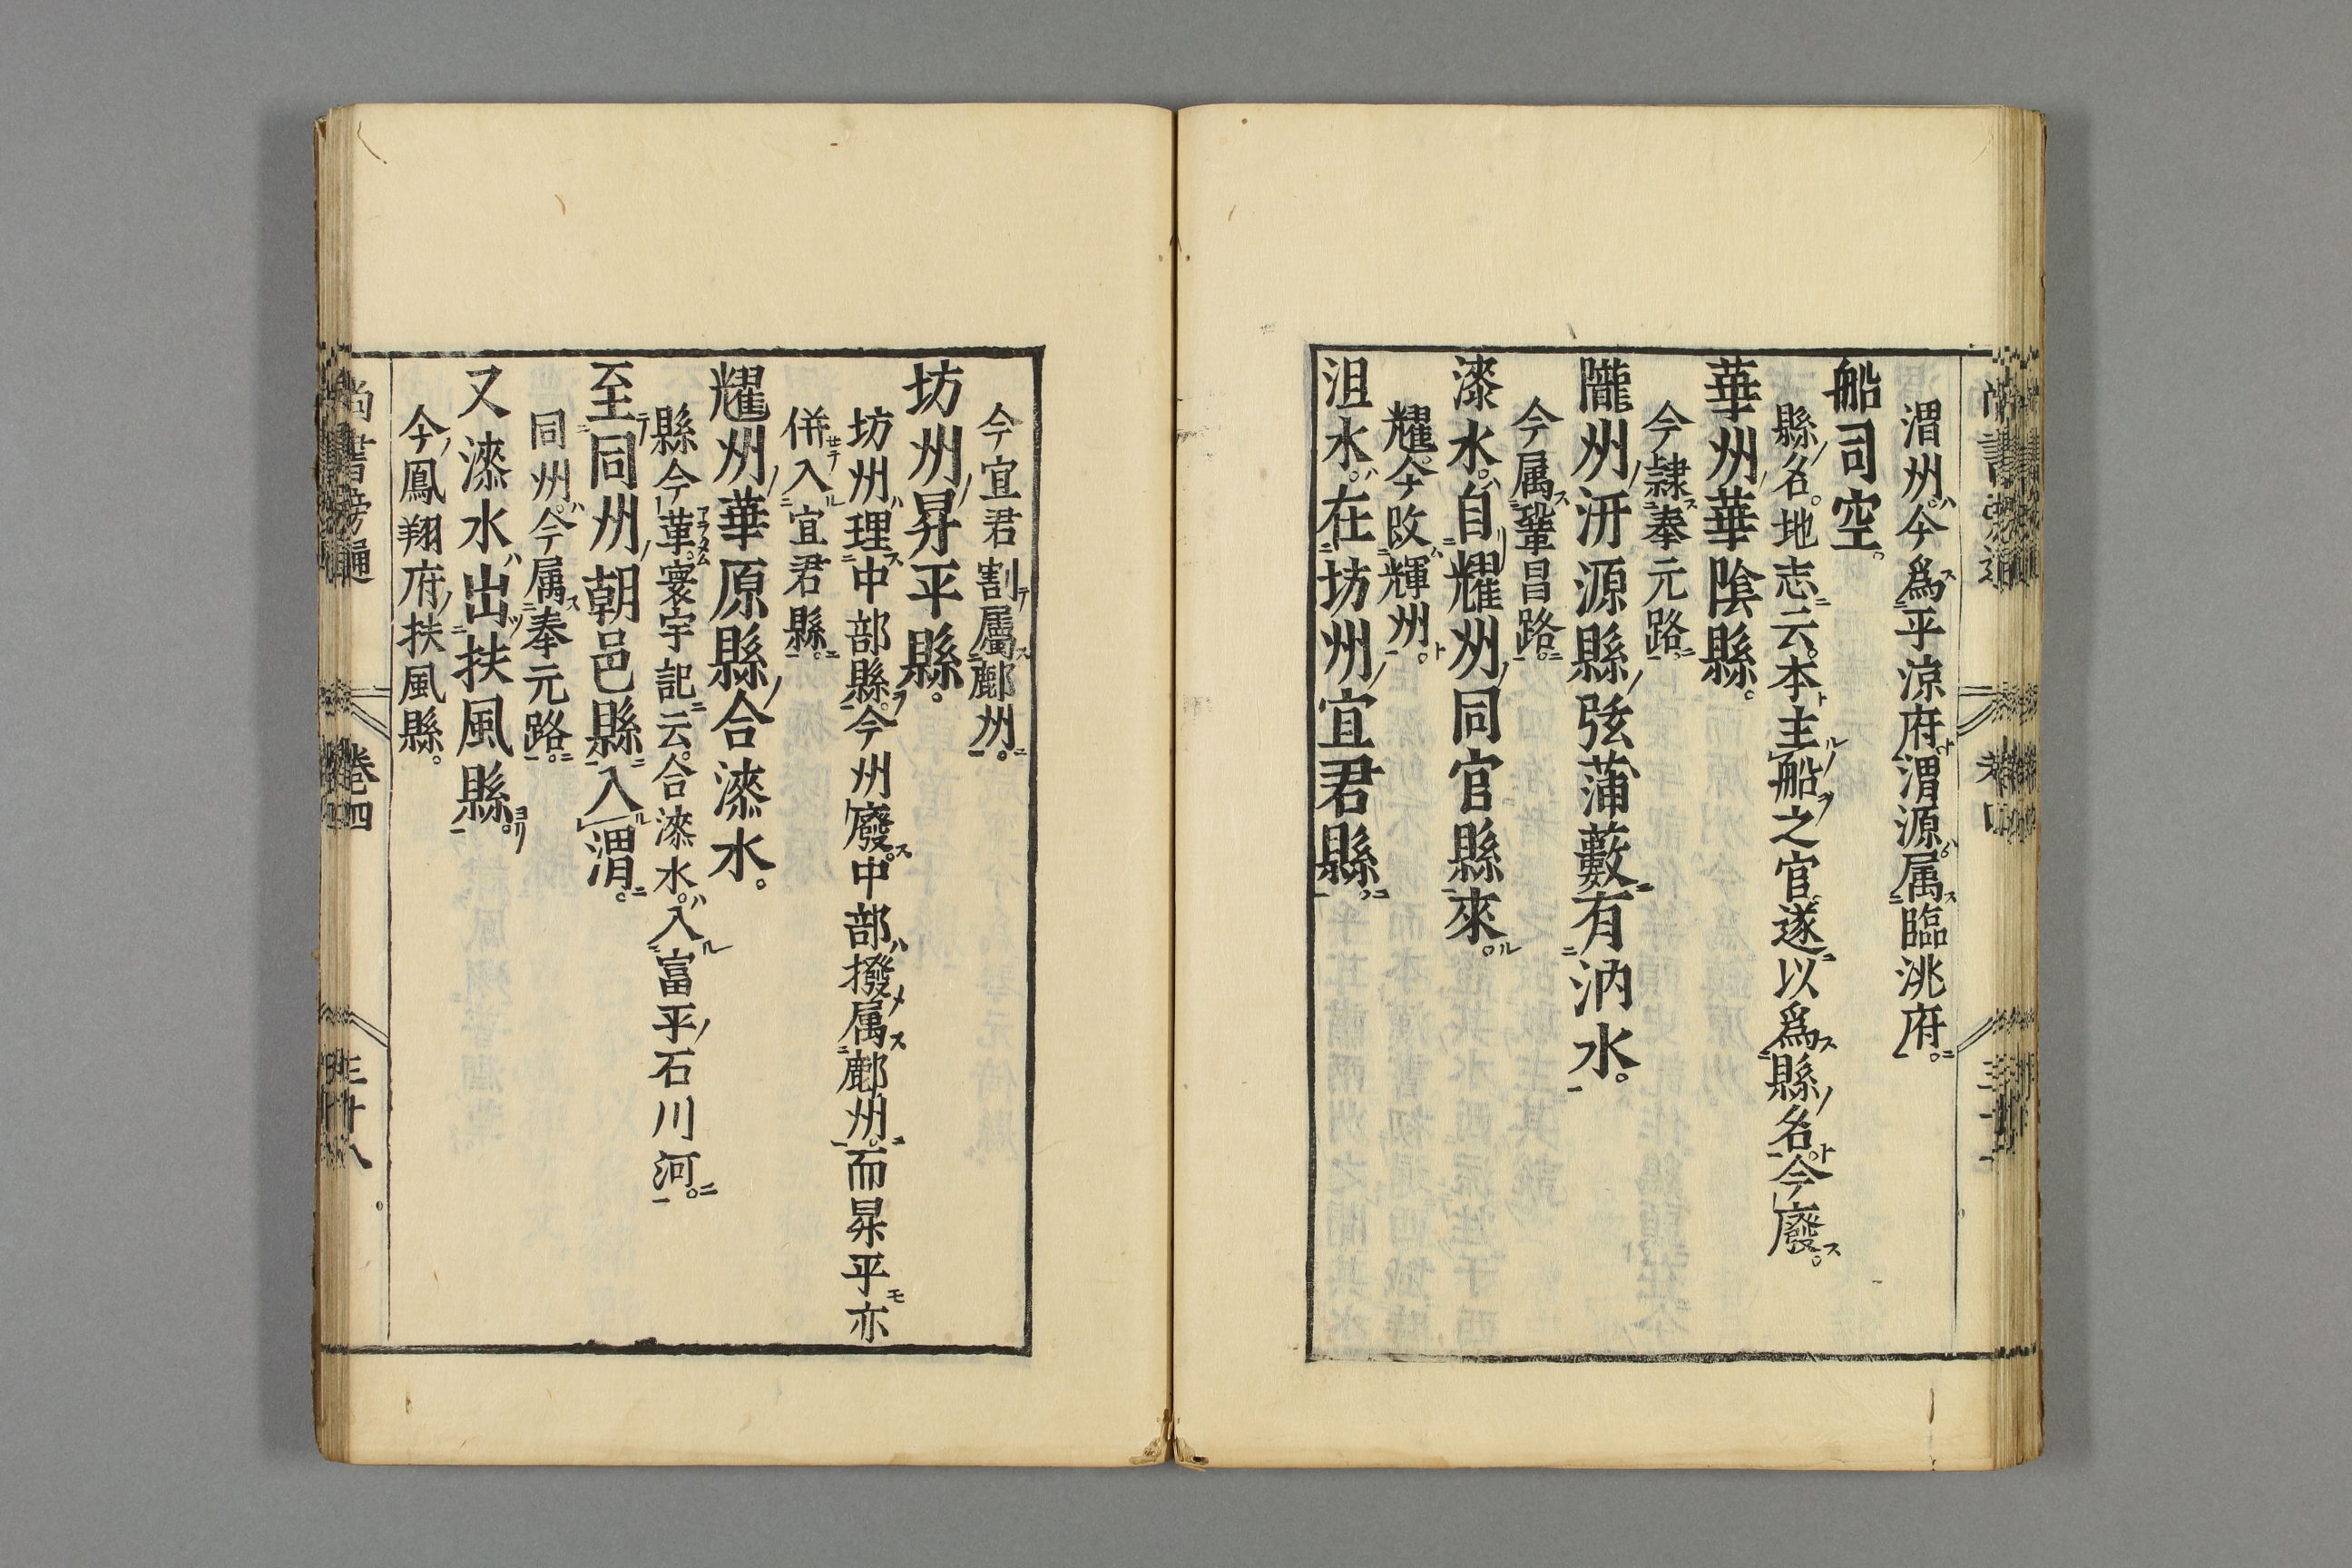 渭州今爲平涼府渭源属臨洮府
船司空
縣名地志云本主船之官遂以爲縣名今廢
華州華陰縣
今隷奉元路
隴州汧源縣弦蒲藪有汭水
今属鞏昌路
漆水自耀州同官縣來
耀今改輝州
沮水在坊州宜君縣
今宜君割屬鄜州
坊州昇平縣
坊州理中部縣今州廢中部撥属鄜州而昇平亦
併入宜君縣
耀州華原縣合漆水
縣今革寰宇記云合漆水入富平石川河
至同州朝邑縣入渭
同州今属奉元路
又漆水出扶風縣
今鳳翔府扶風縣
尚書旁通 卷四 三十八